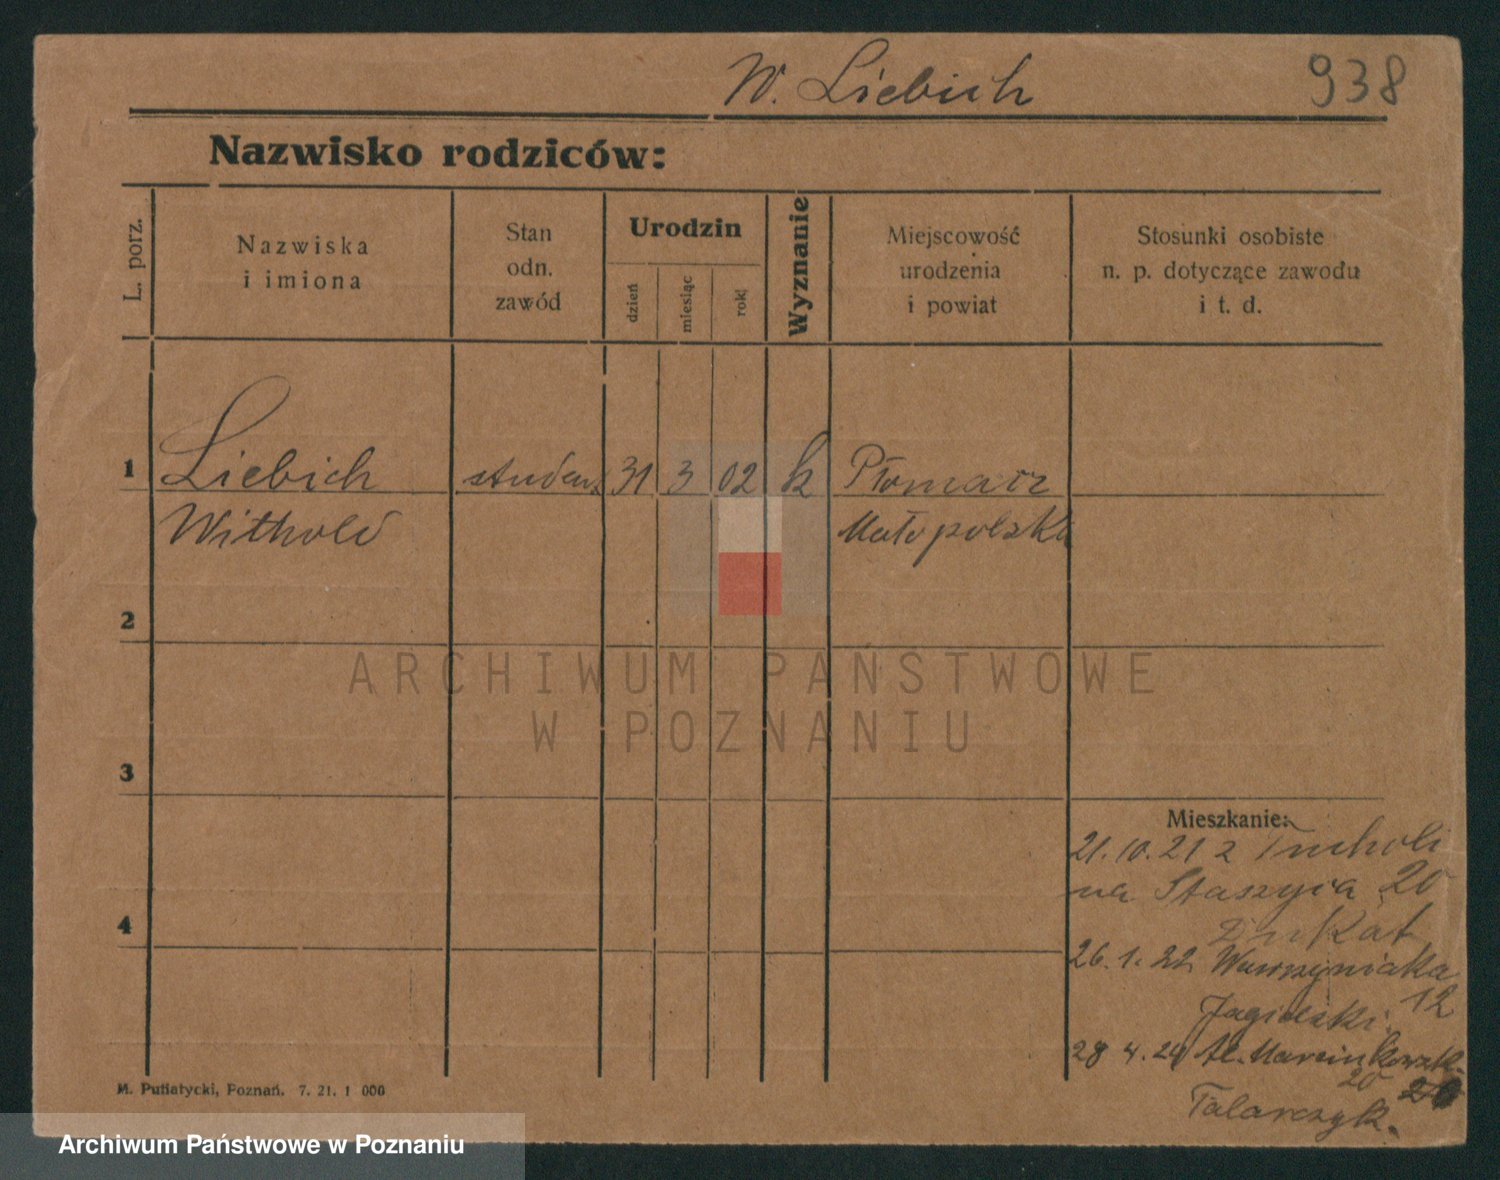 W. Liebich 938
Nazwisko rodziców:
L. porz.
Nazwiska
i imiona
Stan
odn.
zawód
Urodzin
dzień
miesiąc
rok
Wyznanie
Miejscowość
urodzenia
i powiat
Stosunki osobiste
n. p. dotyczące zawodu
i t. d.
1 Liebich student 31 3 02 k
Withold Małopolska
2
ARCHIWUM PAŃSTWOWE
W POZNANIU
3
Mieszkanie:
21.10.21 z Tucholi
na Staszyca 20
Dukat
4
26.1.22 Wawrzyniaka
12
Jagielski
28 4.24 Al. Marcinkowsk.
20
Talarczyk.
M. Putiatycki, Poznań. 7. 21. 1 000
Archiwum Państwowe w Poznaniu